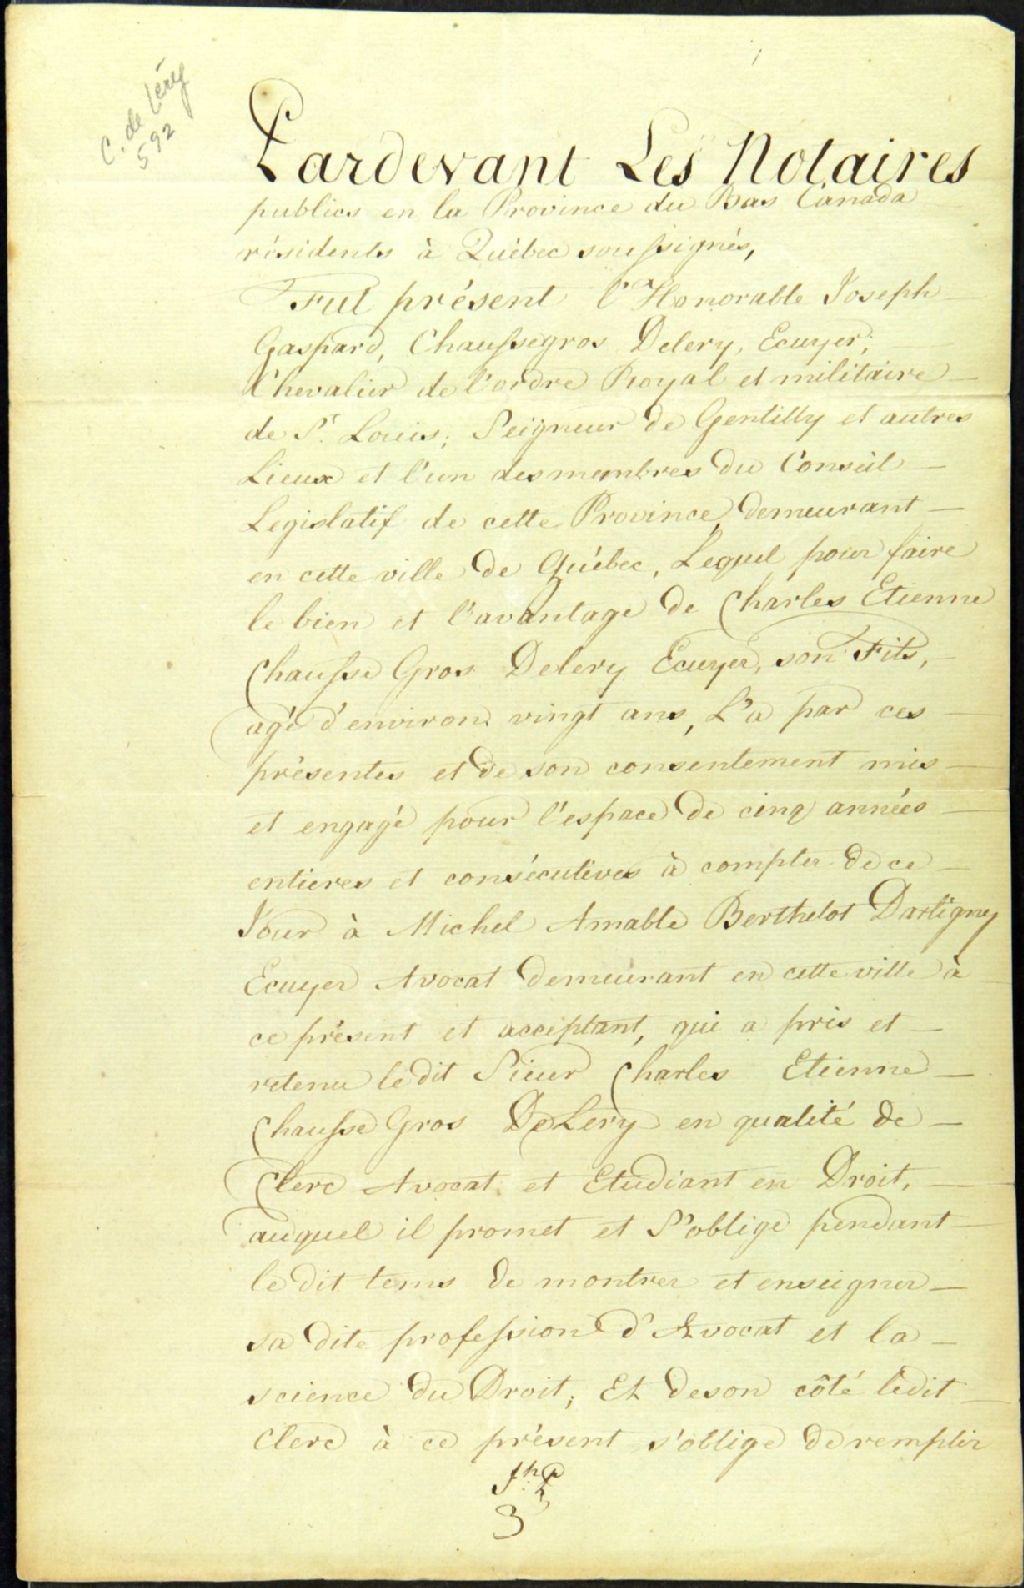 C. de Léry
592
Pardevant Les Notaires
publics en la Province du Bas Canada
résidents à Québec soussignés,
Fut présent l'Honorable Joseph
Gaspard, Chaussegros Delery, Ecuyer,
Chevalier de l'ordre Royal et militaire
de St. Louis, Seigneur de Gentilly et autres
Lieux et l'un des membres du Conseil
Legislatif de cette Province, demeurant
en cette ville de Québec, Lequel pour faire
le bien et l'avantage de Charles Etienne
Chausse Gros Delery Ecuyer, son Fils,
agé d'environ vingt ans, L'a par ces
présentes et de son consentement mis
et engagé pour l'espace de cinq années
entieres et consécutives à compter de ce
Jour à Michel Amable Berthelot Dartigny
Ecuyer Avocat demeurant en cette ville à
ce présent et acceptant, qui a pris et
retenu le dit Sieur Charles Etienne
Chausse Gros DeLery en qualité de
Clerc Avocat et Etudiant en Droit,
auquel il promet et S'oblige pendant
le dit tems de montrer et enseigner
sa dite profession d'Avocat et la
science du Droit, Et de son côté ledit
Clerc à ce présent s'oblige de remplir
3